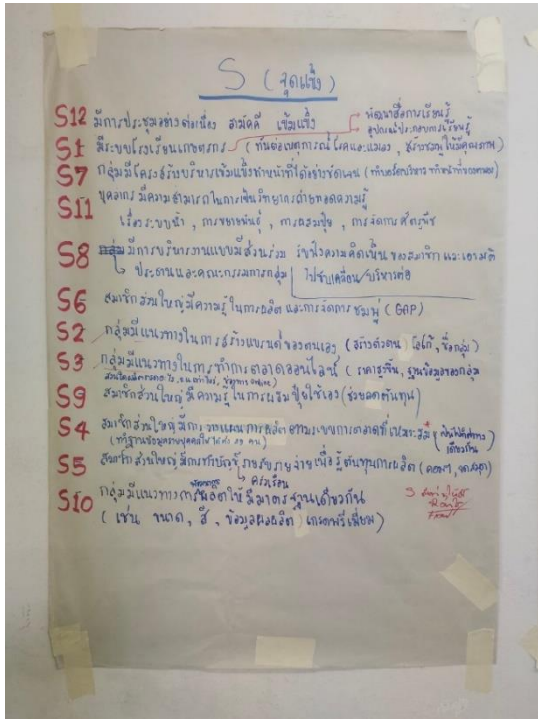 S (จุดแข็ง)
S12 มีการประชุมอย่างต่อเนื่อง สามัคคี เข้มแข็ง
พัฒนาสื่อการเรียนรู้
อุปกรณ์ประกอบการเรียนรู้
S1 มีระบบโรงเรียนเกษตรกร (ทันต่อเหตุการณ์โรคและแมลง,
S7 กลุ่มมีโครงสร้างบริหารเข้มแข็งทำหน้าที่ได้อย่างชัดเจน
S11 บุคลากรมีความสามารถในการเป็นวิทยากรถ่ายทอดความรู้
เรื่องระบบน้ำ, การขยายพันธุ์, การผสมปุ๋ย, การจัดการศัตรูพืช
S8 กลุ่มมีการบริหารงานแบบมีส่วนร่วม รับฟังความคิดเห็นของสมาชิกและเอามติ
ประธานและคณะกรรมการกลุ่ม ไปขับเคลื่อน/บริหารต่อ
S6 สมาชิกส่วนใหญ่มีความรู้ในการผลิตและการจัดการชมพู่ (GAP)
S2 กลุ่มมีแนวทางในการสร้างแบรนด์ของตนเอง (สร้างตัวตน, โลโก้, ชื่อกลุ่ม)
S3 กลุ่มมีแนวทางในการทำการตลาดออนไลน์ (ฐานข้อมูลของกลุ่ม
S9 สมาชิกส่วนใหญ่มีความรู้ในการผสมปุ๋ยใช้เอง (ช่วยลดต้นทุน)
S4 สมาชิกส่วนใหญ่มีการวางแผนการผลิตตามระบบการตลาดที่เหมาะสม
เดียวกัน
S5 สมาชิกส่วนใหญ่มีการทำบัญชีรายรับรายจ่ายเพื่อรู้ต้นทุนการผลิต
ครัวเรือน
S10 กลุ่มมีแนวทางการผลิตให้มีมาตรฐานเดียวกัน
(เช่น ขนาด, สี, ข้อมูลผลผลิต) เกรดพรีเมี่ยม)